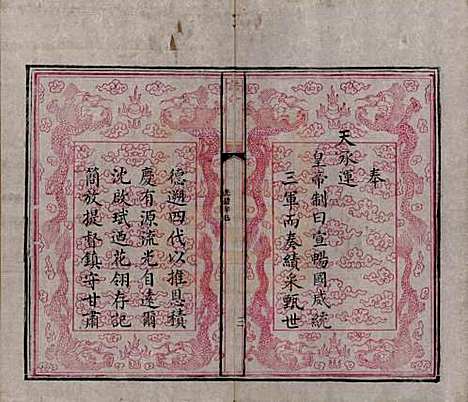 奉
天承運
皇帝制曰宣暢國威統
三軍而奏績采甄世
德溯四代以推恩積
慶有源流光自遠爾
沈啟斌迺花翎存記
簡放提督鎮守甘肅